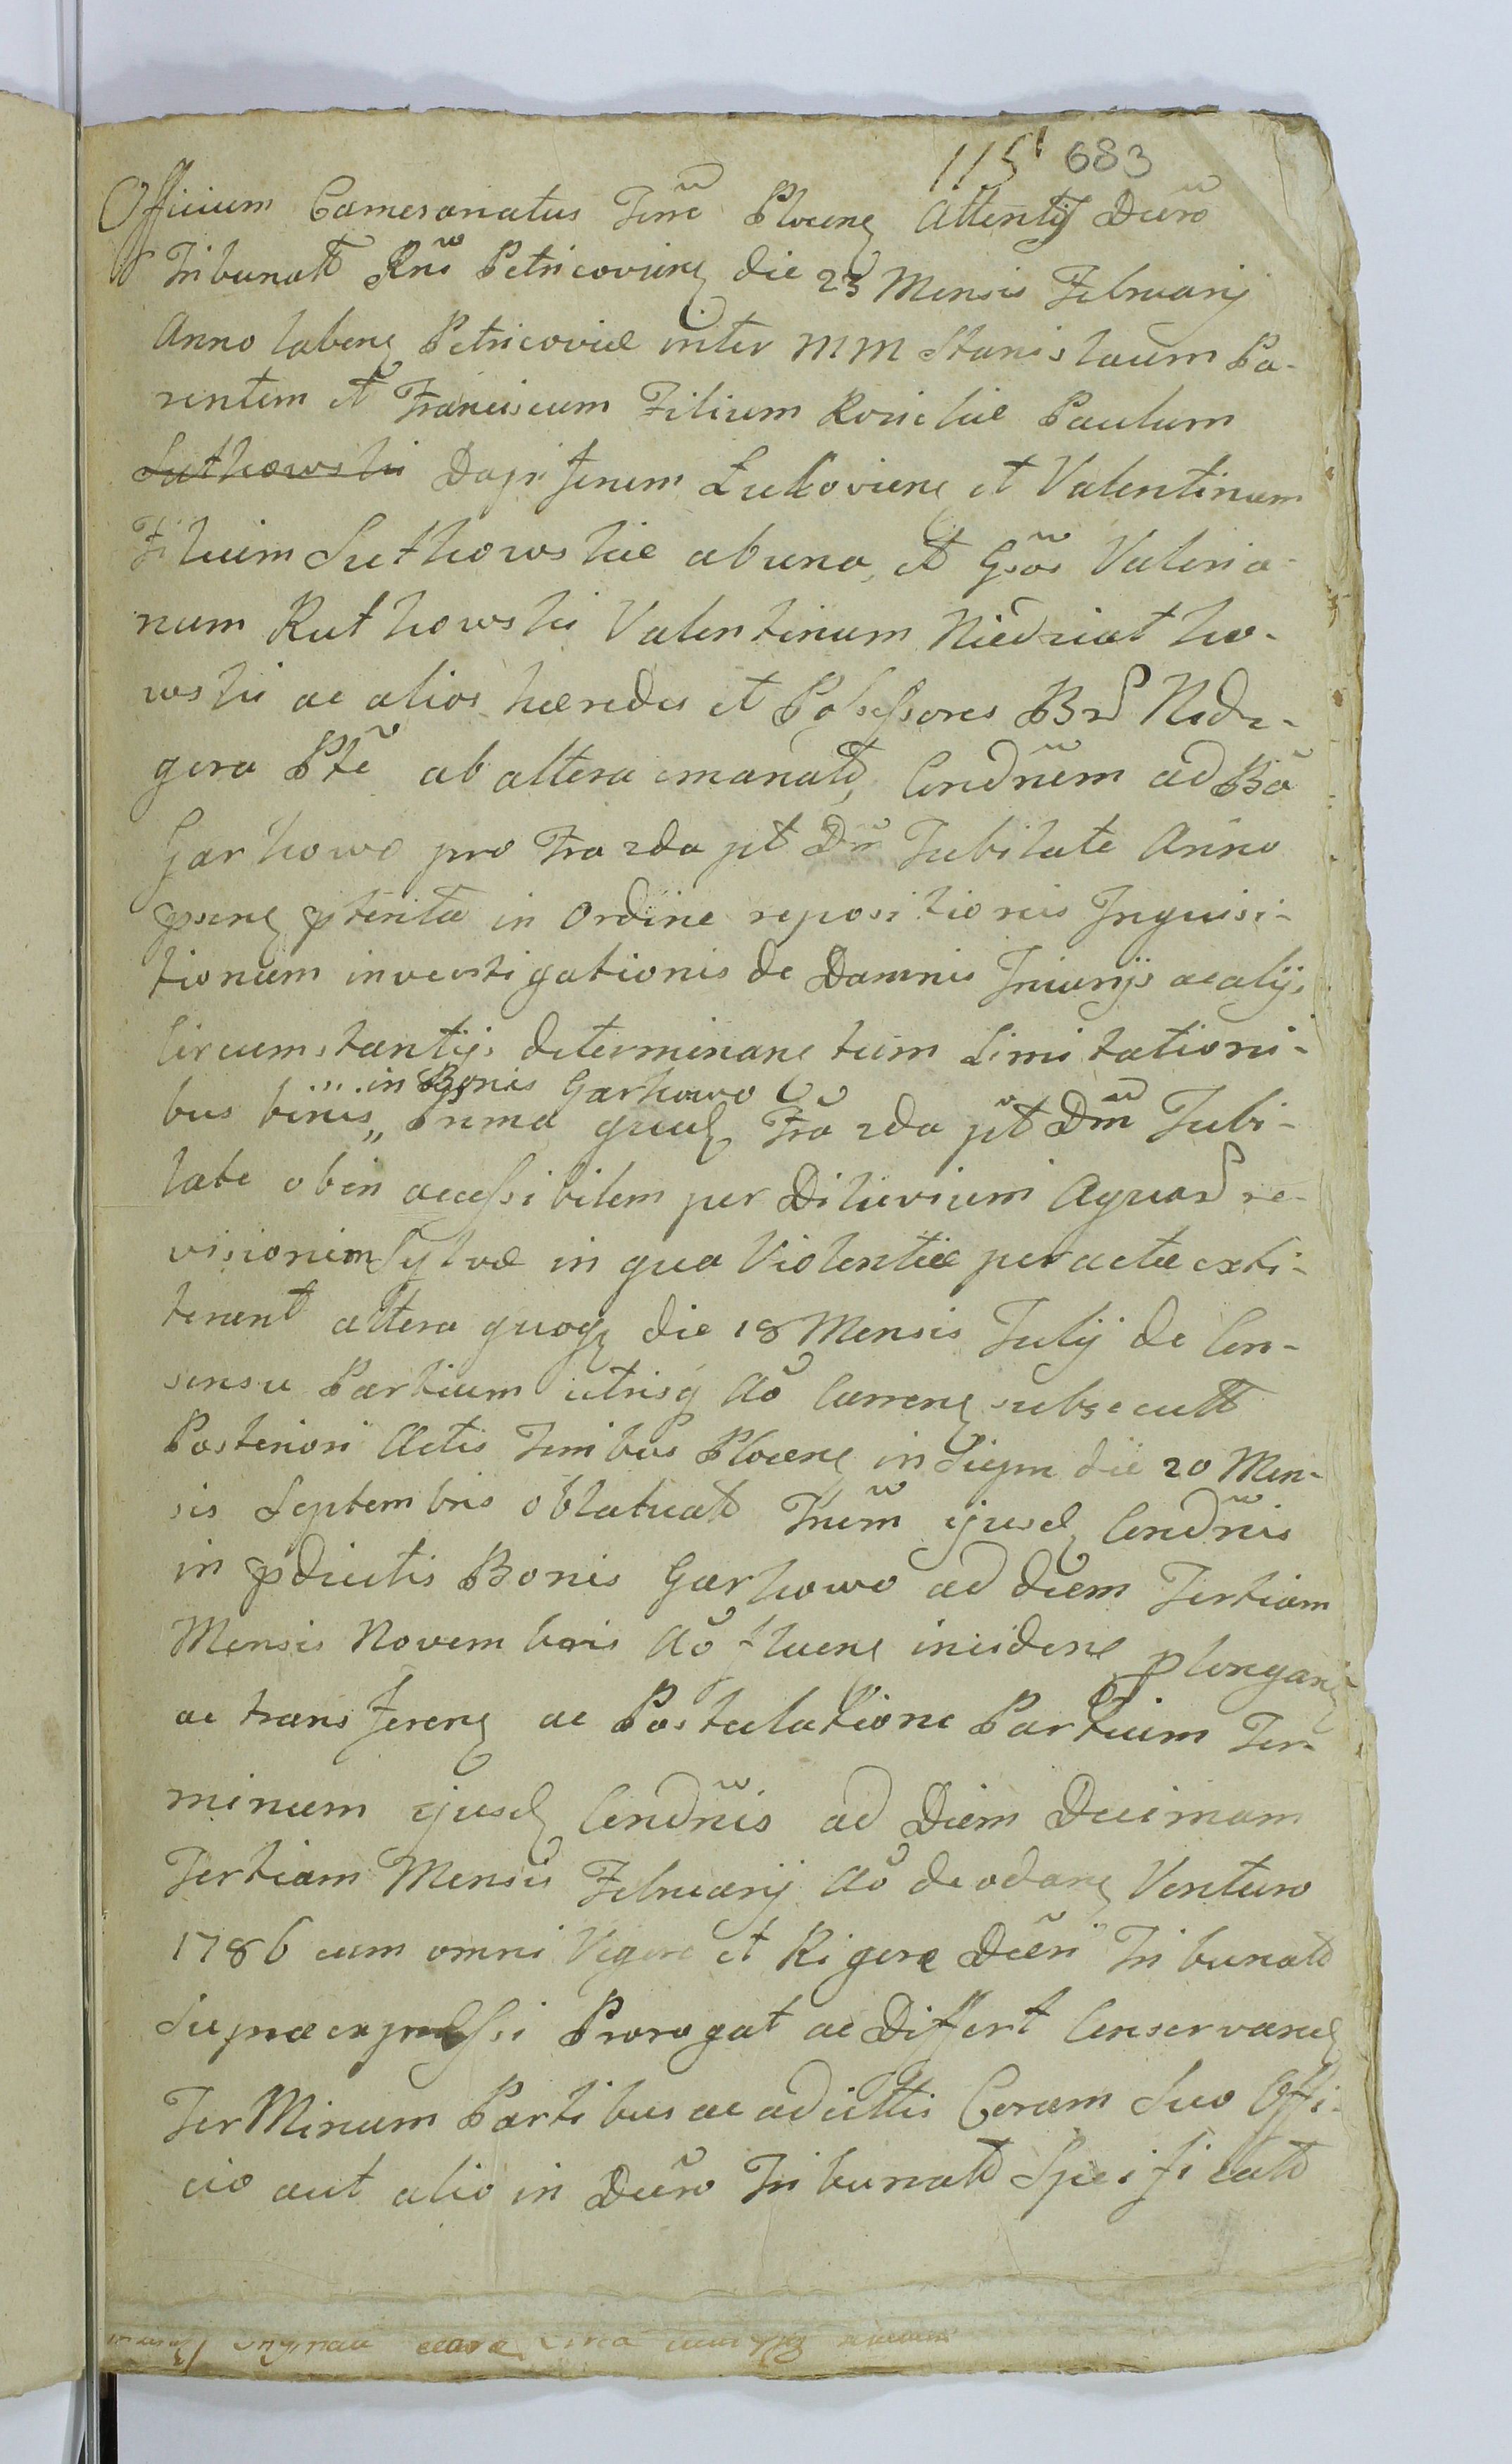 115 683
Officium Cameranatus Trrae Plocens Attentis Decro
Tribunatt Rni Petricoviens die 23 Mensis Februarij
Anno labens Petricoviae inter MM Stanislaum Pa-
rentem et Franciscum Filium Rosciclae Paulum
Sutkowski Dapiferum Łukoviens et Valentinum
Filium Sutkowskie ab una, et Gsos Valeria-
num Rutkowski Valentinum Niedziatko-
wski ac alios haeredes et Possessores Br Nede-
gora Pte ab altera emanatt, Condnem ad Ba
Garkowo pro Fra 2da pt Dm Jubilate Anno
psens ptenta in Ordine repositionis Inquisi-
tionum investigationis de Damnis Iniurijs ac alijs
Circumstantijs determinans tum Limitationi-
in Bonis Garkowo
bus binis,, Prima quid Fra 2da pt Dm Jubi-
late ob in accessibilem per Diluvium Aquar re-
visionem Sylvae in qua Violentiae peractae exti-
terunt altera quoq die 18 Mensis Julij de Con-
sensu Partium utrisq Ao Currens subsecutt
Posteriori Actis Trribus Plocens in Siepre die 20 Men-
sis Septembris oblatuatt Trnum ejusd Condnis
in pdictis Bonis Garkowo ad diem Tertiam
Mensis Novembris Ao fluens incidens plongans
ac transferens ac Postulatione Partium Ter-
minum ejusd Condnis ad Diem Decimam
Tertiam Mensis Februarij Ao deodans Venturo
1786 cum omni Vigore et Rigore Decri Tribunatt
Supraexpressi Prorogat ac Differt Conservand
TerMinum Partibus ac adcittis Coram Suo Offi-
cio aut alio in Decro Tribunatt Specificatt